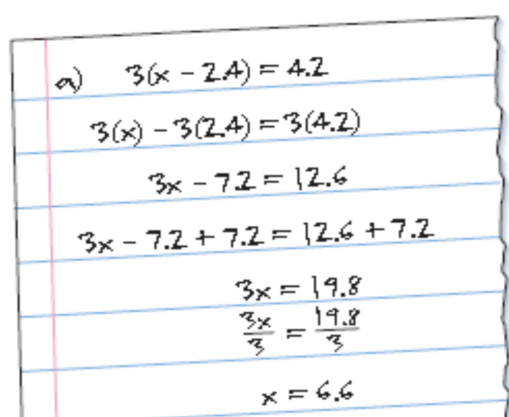 a) 3(x − 2.4) = 4.2
3(x) − 3(2.4) = 3(4.2)
3x − 7.2 = 12.6
3x − 7.2 + 7.2 = 12.6 + 7.2
3x = 19.8
3x/3 = 19.8/3
x = 6.6